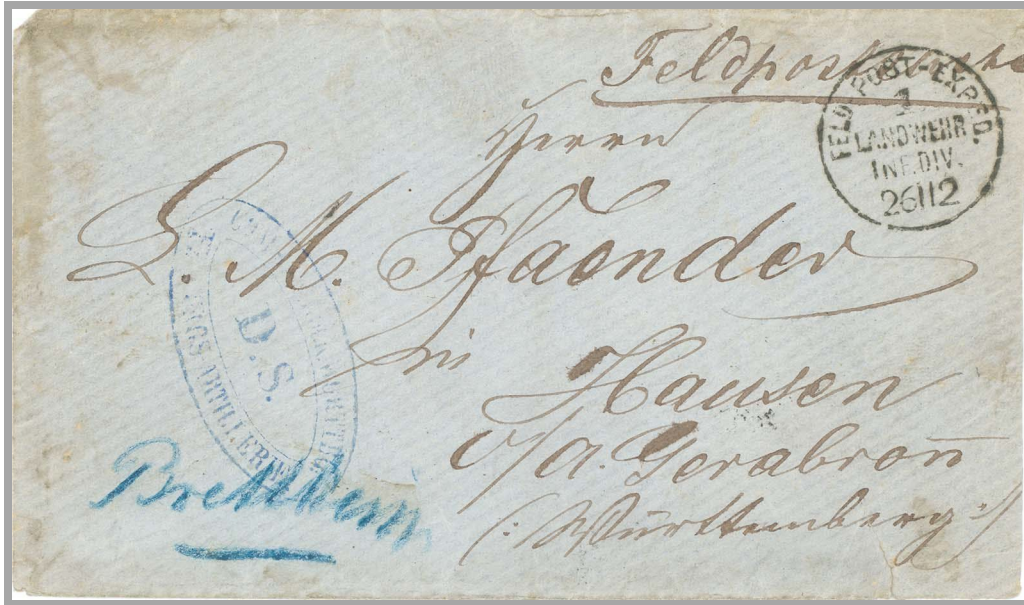 Feldpost
FELD-POST-EXPED.
1
LANDWEHR
INF. DIV.
26 12
Herrn
L. M. Pfaender
in
Hausen
o/a. Gerabroñ
(: Württemberg :)
D. S.
ARTILLERIE
Brettheim